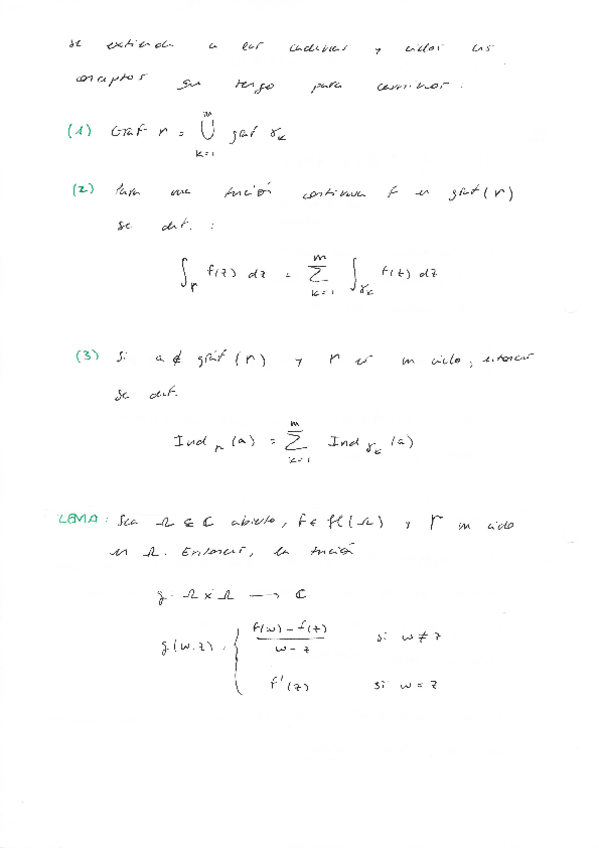 se extienden a las cadenas y ciclos los
conceptos que tengo para caminos:
(1) Graf Γ = ⋃_{k=1}^{m} graf γ_k
(2) Para una función continua f en graf(Γ)
se def. :
∫_Γ f(z) dz = ∑_{k=1}^{m} ∫_{γ_k} f(z) dz
(3) Si a ∉ graf(Γ) y Γ es un ciclo, entonces
se def.
Ind_Γ (a) = ∑_{k=1}^{m} Ind_{γ_k} (a)
LEMA: Sea Ω ⊆ ℂ abierto, f ∈ H(Ω) y Γ un ciclo
en Ω. Entonces, la función
g: Ω × Ω ⟶ ℂ
g(w,z) = { (f(w) - f(z))/(w - z) si w ≠ z
f'(z) si w = z